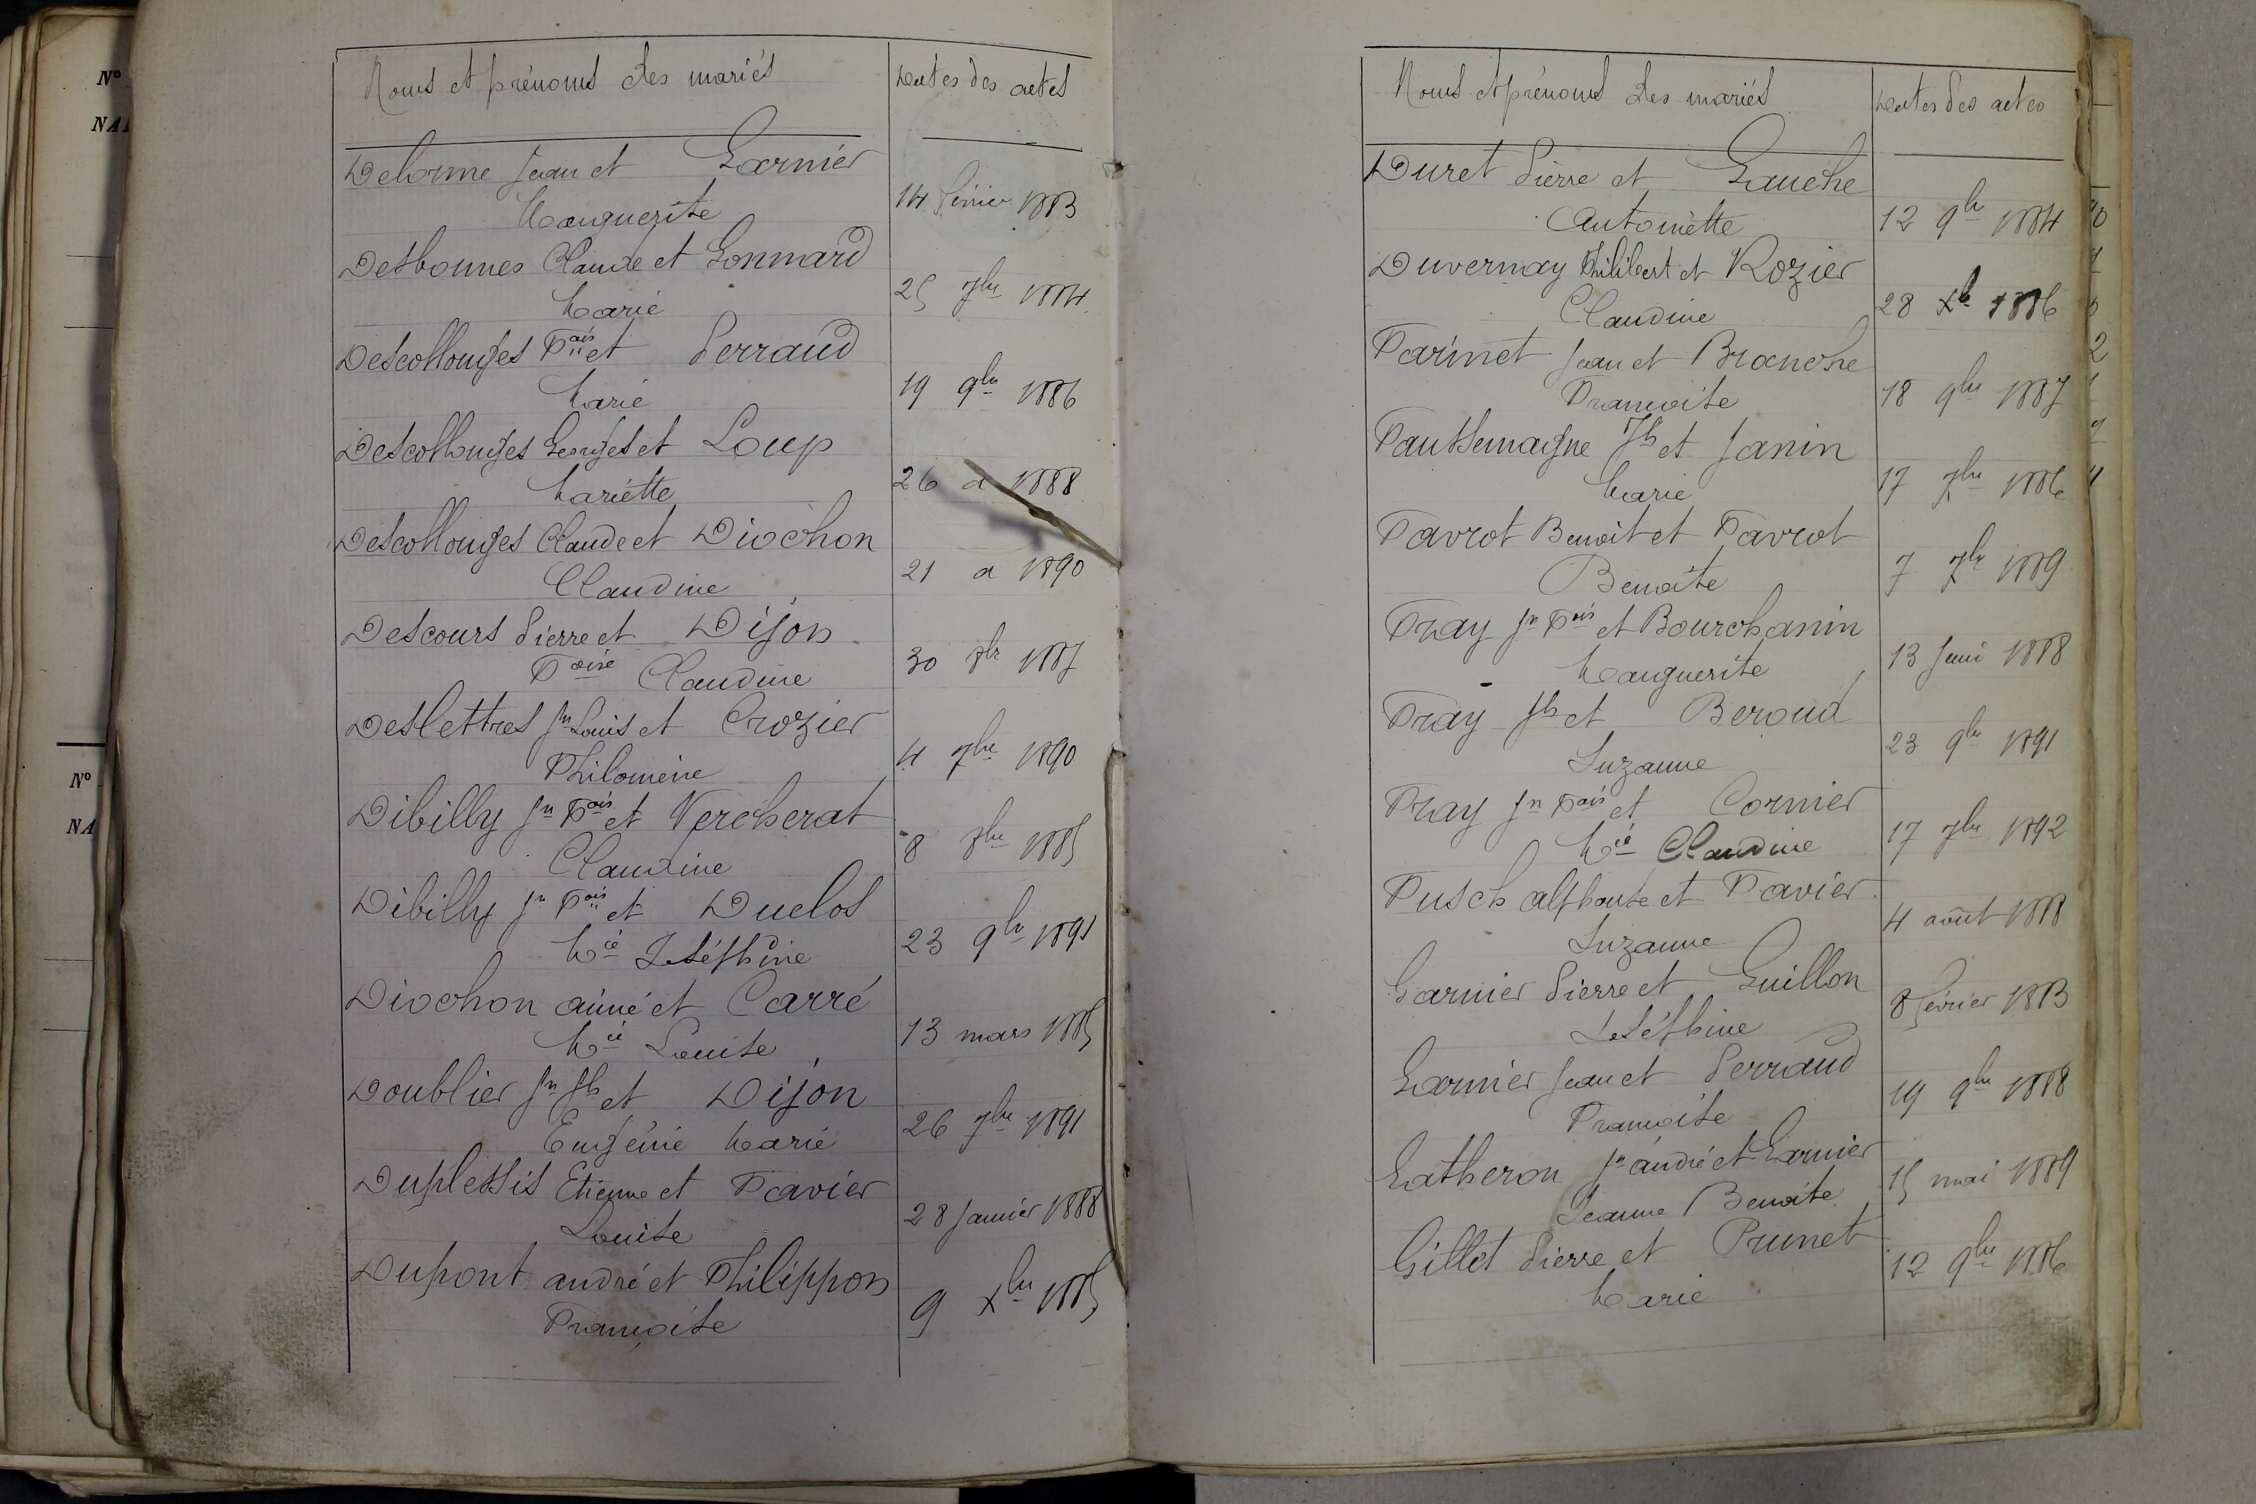 N°
NA
N°
NA
Noms et prénoms des mariés
Dates des actes
Delorme Jean et Garnier
Marguerite
14 février 1883
Desbonnes Claude et Gonnard
Marie
25 7bre 1884
Descollonges Fois et Perraud
Marie
19 9bre 1886
Descollonges Georges et Loup
Mariette
26 d 1888
Descollonges Claude et Diochon
Claudine
21 d 1890
Descours Pierre et Dijon
Foise Claudine
30 8bre 1887
Deslettres Jn Louis et Crozier
Philomène
4 7bre 1890
Dibilly Jn Fois et Vercherat
Claudine
8 8bre 1885
Dibilly Jn Fois et Duclos
Mie Joséphine
23 9bre 1891
Diochon aimé et Carré
Mie Louise
13 mars 1885
Doublier Jn Jh et Dijon
Eugénie Marie
26 7bre 1891
Duplessis Etienne et Favier
Louise
28 Janvier 1888
Dupont andré et Philippon
Françoise
9 Xbre 1885
Noms et prénoms des mariés
Dates des actes
Duret Pierre et Gauche
Antoinette
12 9bre 1884
Duvernay Philibert et Rozier
Claudine
28 Xbre 1886
Farinet Jean et Branche
Françoise
18 9bre 1887
Fautsemagne Jh et Janin
Marie
17 7bre 1886
Favrot Benoit et Favrot
Benoîte
7 7bre 1889
Fray Jn Fois et Bourchanin
Marguerite
13 Juin 1888
Fray Jh et Beroud
Suzanne
23 9bre 1891
Fray Jn Fois et Cornier
Mie Claudine
17 7bre 1892
Fusch alphonse et Favier
Suzanne
4 août 1888
Garnier Pierre et Guillon
Joséphine
8 février 1883
Garnier Jean et Perraud
Françoise
19 9bre 1888
Gatheron Jn andré et Garnier
Jeanne Benoîte
15 mai 1889
Gillet Pierre et Prunet
Marie
12 9bre 1886